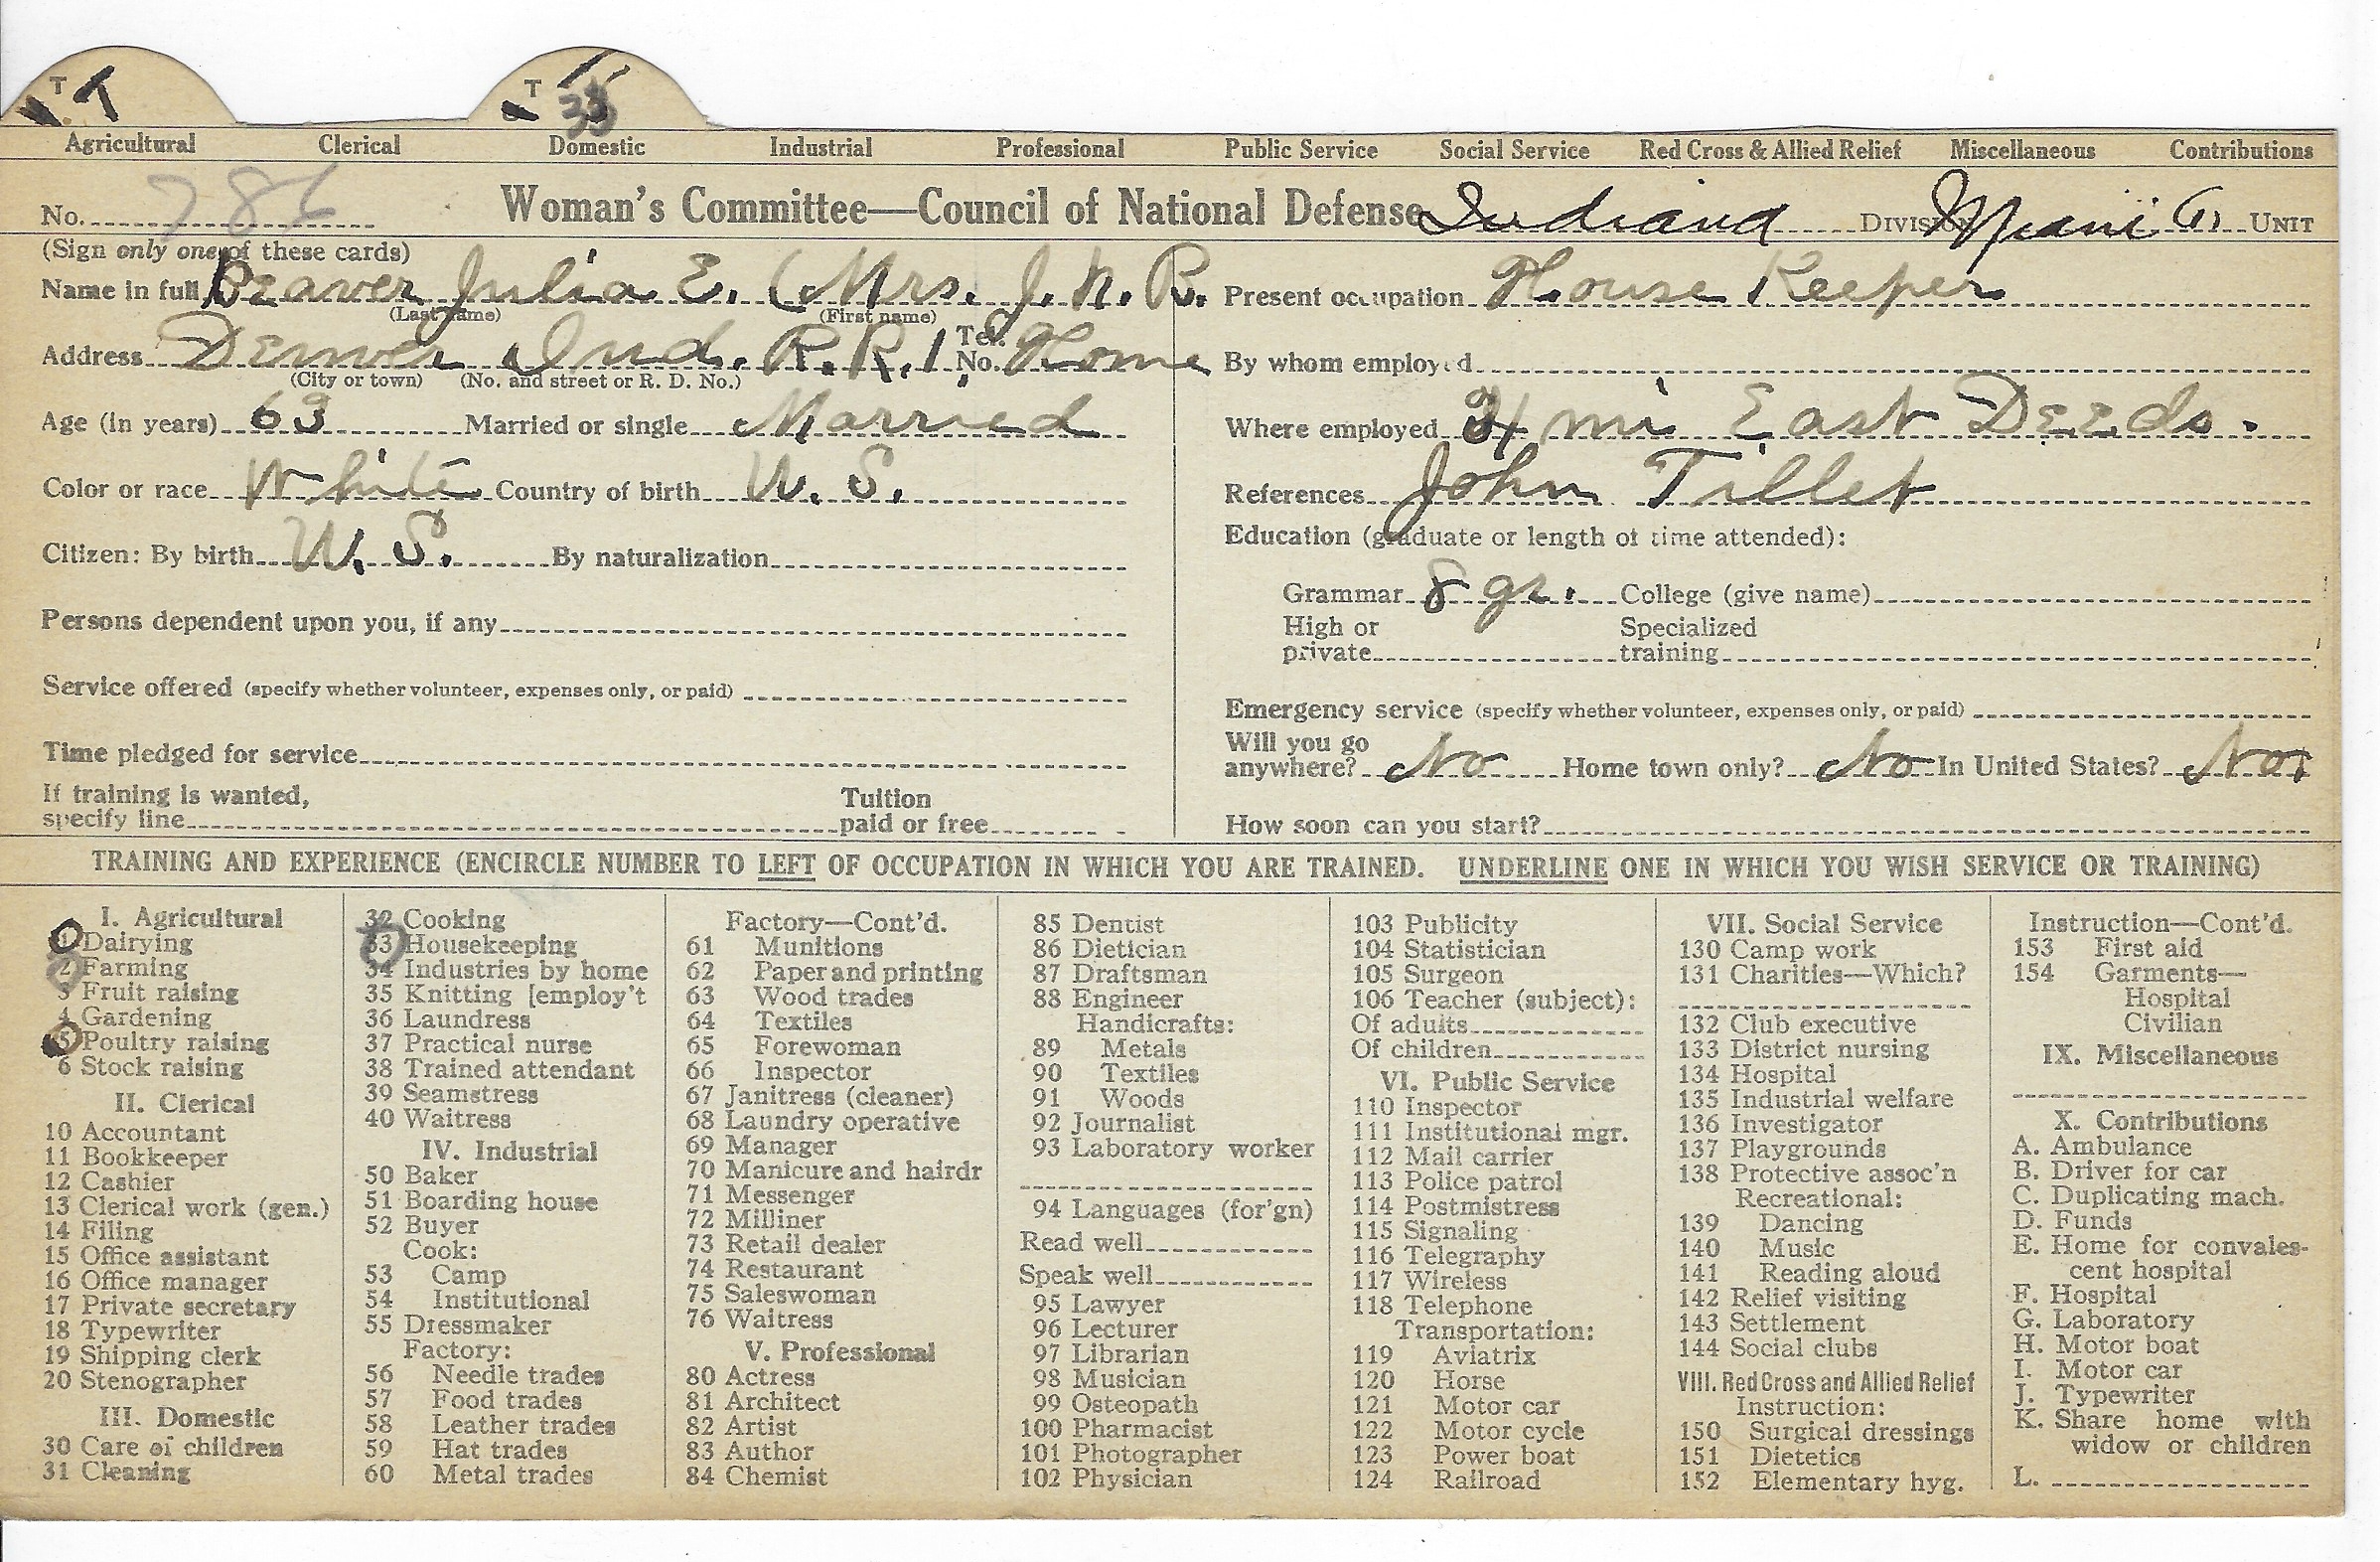 T T T 33
Agricultural Clerical Domestic Industrial Professional Public Service Social Service Red Cross & Allied Relief Miscellaneous Contributions
No. 786 Woman's Committee—Council of National Defense Indiana DIVISION Miami UNIT
(Sign only one of these cards)
Name in full Beaver Julia E. (Mrs. J. N. B.
(Last name) (First name)
Address Denver Ind. R.R. 1 Tel. No. Home
(City or town) (No. and street or R. D. No.)
Age (in years) 63 Married or single Married
Color or race White Country of birth U. S.
Citizen: By birth U. S. By naturalization
Persons dependent upon you, if any
Service offered (specify whether volunteer, expenses only, or paid)
Time pledged for service
If training is wanted, specify line Tuition paid or free
Present occupation House Keeper
By whom employed
Where employed 3/4 mi East Deeds.
References John Tillet
Education (graduate or length of time attended):
Grammar 8 gr. College (give name)
High or private Specialized training
Emergency service (specify whether volunteer, expenses only, or paid)
Will you go anywhere? No Home town only? No In United States? No
How soon can you start?
TRAINING AND EXPERIENCE (ENCIRCLE NUMBER TO LEFT OF OCCUPATION IN WHICH YOU ARE TRAINED. UNDERLINE ONE IN WHICH YOU WISH SERVICE OR TRAINING)
I. Agricultural
1 Dairying
2 Farming
3 Fruit raising
4 Gardening
5 Poultry raising
6 Stock raising
II. Clerical
10 Accountant
11 Bookkeeper
12 Cashier
13 Clerical work (gen.)
14 Filing
15 Office assistant
16 Office manager
17 Private secretary
18 Typewriter
19 Shipping clerk
20 Stenographer
III. Domestic
30 Care of children
31 Cleaning
32 Cooking
33 Housekeeping
34 Industries by home
35 Knitting [employ't
36 Laundress
37 Practical nurse
38 Trained attendant
39 Seamstress
40 Waitress
IV. Industrial
50 Baker
51 Boarding house
52 Buyer
Cook:
53 Camp
54 Institutional
55 Dressmaker
Factory:
56 Needle trades
57 Food trades
58 Leather trades
59 Hat trades
60 Metal trades
Factory—Cont'd.
61 Munitions
62 Paper and printing
63 Wood trades
64 Textiles
65 Forewoman
66 Inspector
67 Janitress (cleaner)
68 Laundry operative
69 Manager
70 Manicure and hairdr
71 Messenger
72 Milliner
73 Retail dealer
74 Restaurant
75 Saleswoman
76 Waitress
V. Professional
80 Actress
81 Architect
82 Artist
83 Author
84 Chemist
85 Dentist
86 Dietician
87 Draftsman
88 Engineer
Handicrafts:
89 Metals
90 Textiles
91 Woods
92 Journalist
93 Laboratory worker
94 Languages (for'gn)
Read well
Speak well
95 Lawyer
96 Lecturer
97 Librarian
98 Musician
99 Osteopath
100 Pharmacist
101 Photographer
102 Physician
103 Publicity
104 Statistician
105 Surgeon
106 Teacher (subject):
Of adults
Of children
VI. Public Service
110 Inspector
111 Institutional mgr.
112 Mail carrier
113 Police patrol
114 Postmistress
115 Signaling
116 Telegraphy
117 Wireless
118 Telephone
Transportation:
119 Aviatrix
120 Horse
121 Motor car
122 Motor cycle
123 Power boat
124 Railroad
VII. Social Service
130 Camp work
131 Charities—Which?
132 Club executive
133 District nursing
134 Hospital
135 Industrial welfare
136 Investigator
137 Playgrounds
138 Protective assoc'n
Recreational:
139 Dancing
140 Music
141 Reading aloud
142 Relief visiting
143 Settlement
144 Social clubs
VIII. Red Cross and Allied Relief
Instruction:
150 Surgical dressings
151 Dietetics
152 Elementary hyg.
Instruction—Cont'd.
153 First aid
154 Garments—
Hospital
Civilian
IX. Miscellaneous
X. Contributions
A. Ambulance
B. Driver for car
C. Duplicating mach.
D. Funds
E. Home for convales-
cent hospital
F. Hospital
G. Laboratory
H. Motor boat
I. Motor car
J. Typewriter
K. Share home with
widow or children
L.